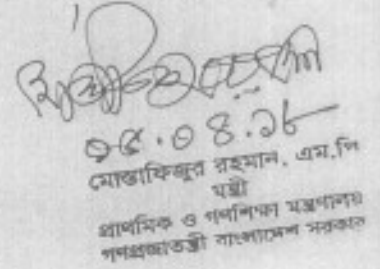 ০৫.০৪.১৮
মোস্তাফিজুর রহমান, এম,পি
মন্ত্রী
প্রাথমিক ও গণশিক্ষা মন্ত্রণালয়
গণপ্রজাতন্ত্রী বাংলাদেশ সরকার